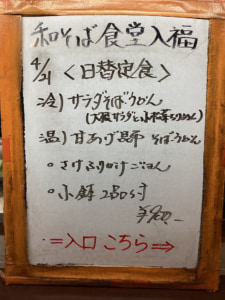 和そば食堂入福
4/21 <日替定食>
冷) サラダそばうどん
(大根サラダと小松菜
温) 甘あげ昆布 そばうどん
○さけふりかけごはん
○小鉢2品付
⇒入口 こちら⇒